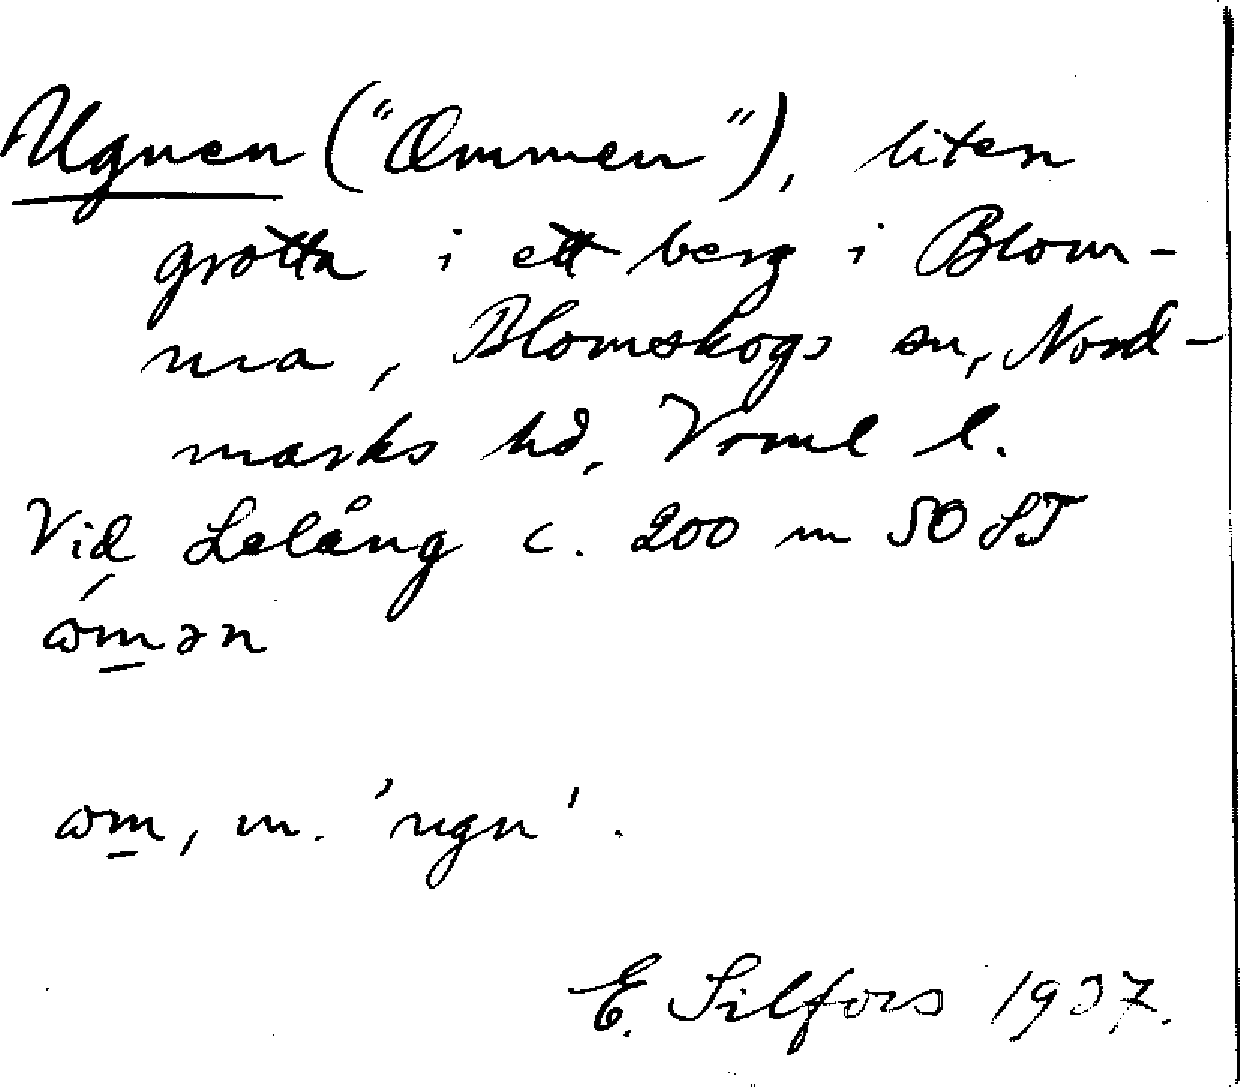 Ugnen ("Ommen"), liten
grotta i ett berg i Blom-
ma, Blomskogs sn, Nord-
marks hd, Vrml l.
Vid Lelång c. 200 m SO ST
ɷ́mən
ɷm, m. 'ugn'.
E. Silfors 1937.